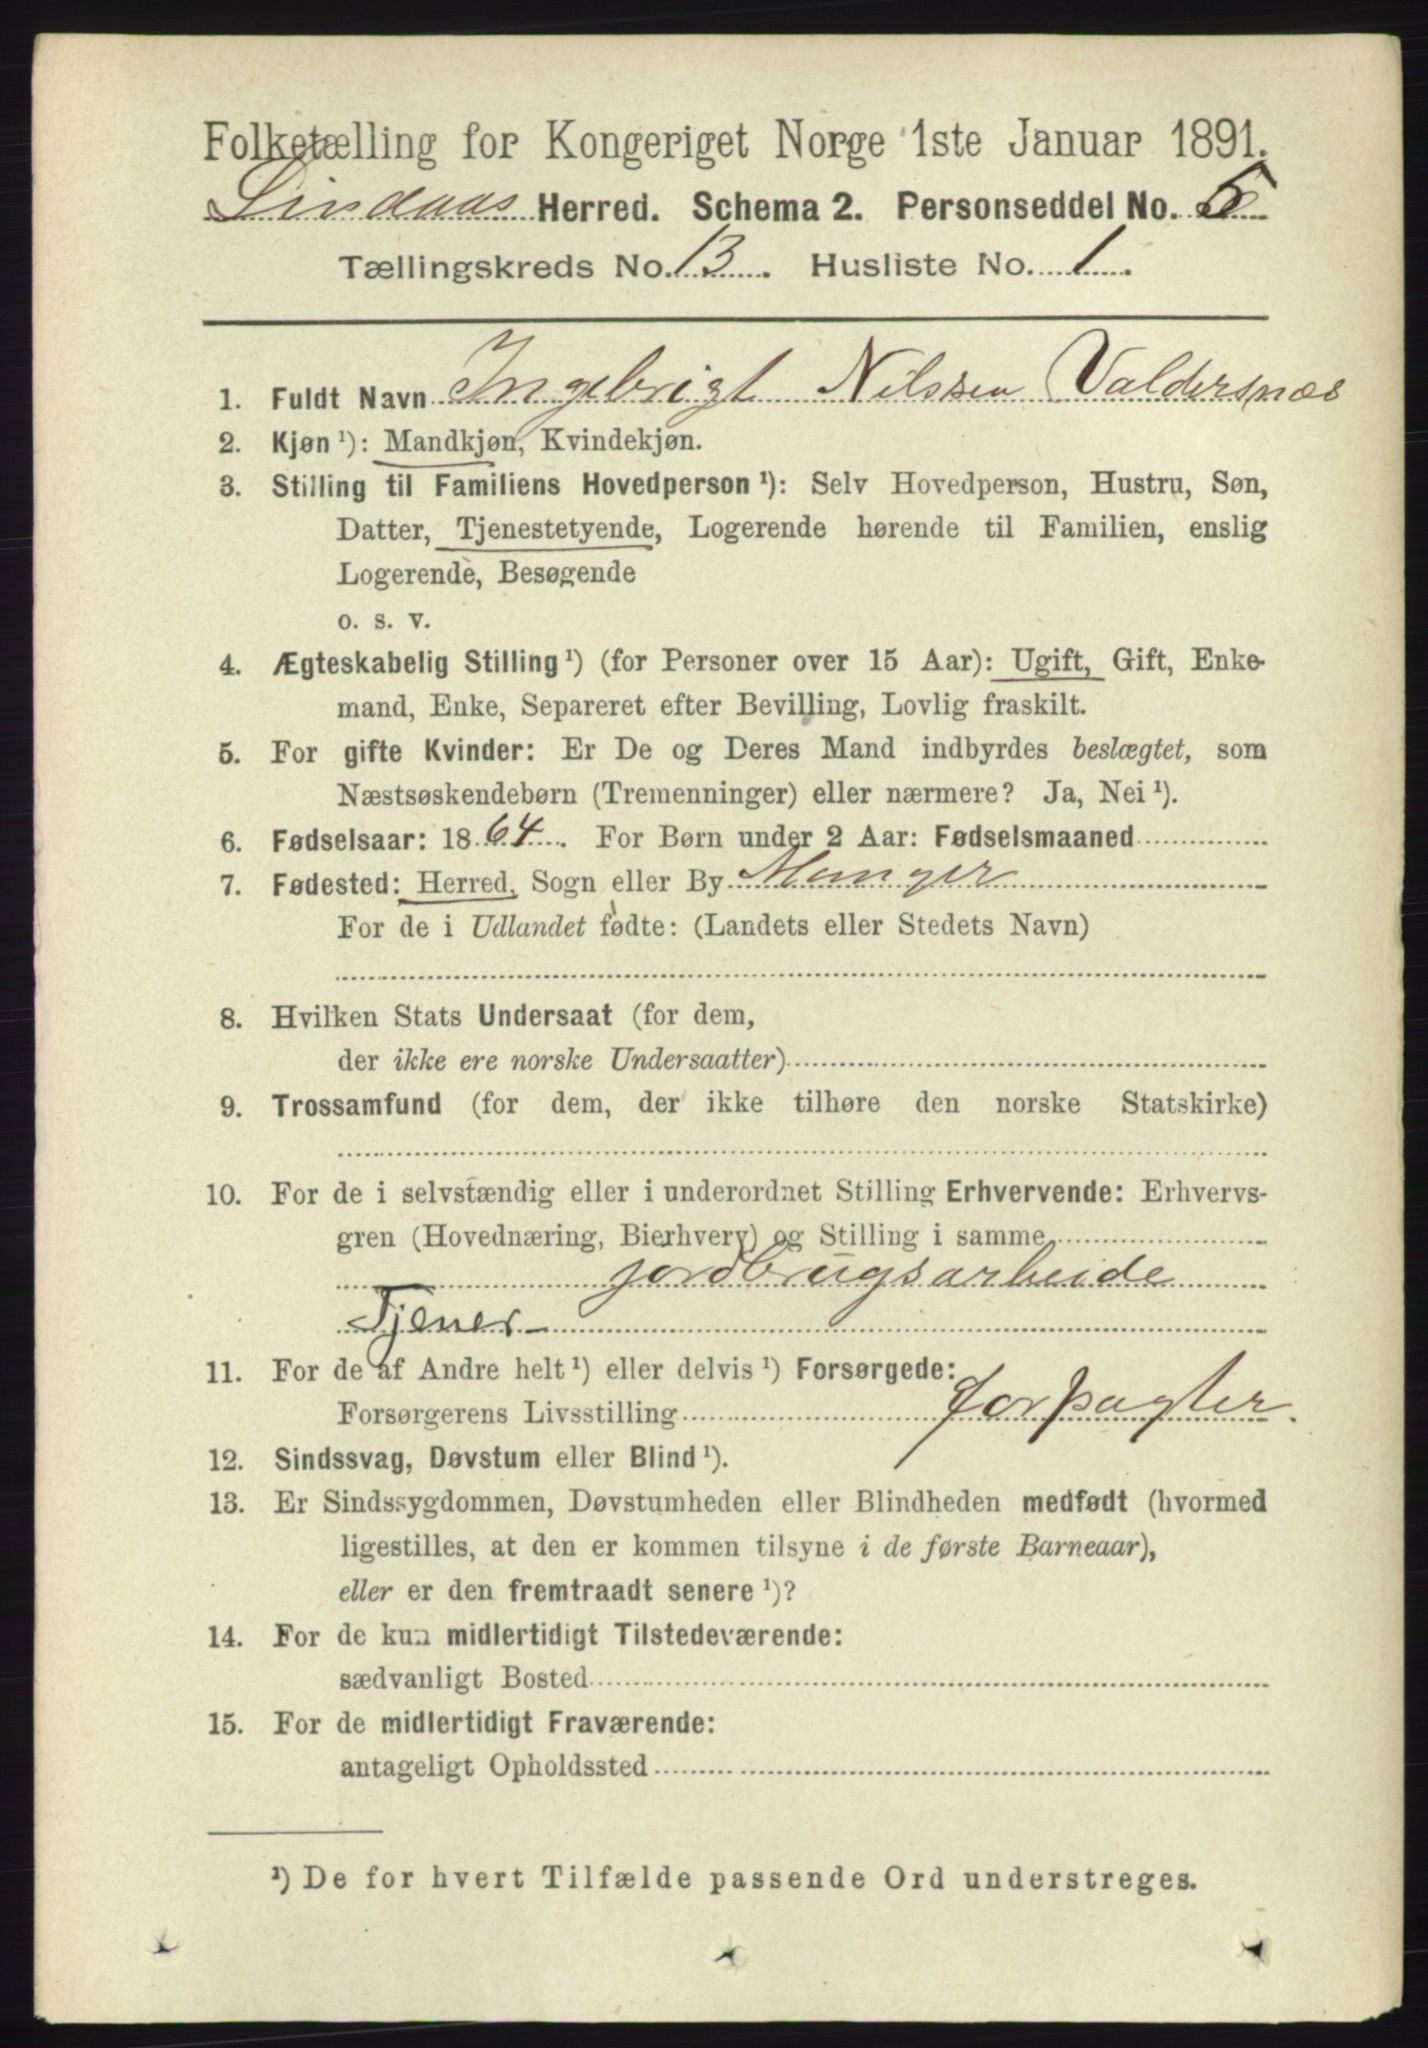 Folketælling for Kongeriget Norge 1ste Januar 1891.
Lindaas Herred. Schema 2. Personseddel No. 5
Tællingskreds No. 13. Husliste No. 1.
1. Fuldt Navn Ingebrigt Nilssen Valdersnæs
2. Kjøn ¹): Mandkjøn, Kvindekjøn.
3. Stilling til Familiens Hovedperson ¹): Selv Hovedperson, Hustru, Søn,
Datter, Tjenestetyende, Logerende hørende til Familien, enslig
Logerende, Besøgende
o. s. v.
4. Ægteskabelig Stilling ¹) (for Personer over 15 Aar): Ugift, Gift, Enke-
mand, Enke, Separeret efter Bevilling, Lovlig fraskilt.
5. For gifte Kvinder: Er De og Deres Mand indbyrdes beslægtet, som
Næstsøskendebørn (Tremenninger) eller nærmere? Ja, Nei ¹).
6. Fødselsaar: 1864. For Børn under 2 Aar: Fødselsmaaned
7. Fødested: Herred, Sogn eller By Manger
For de i Udlandet fødte: (Landets eller Stedets Navn)
8. Hvilken Stats Undersaat (for dem,
der ikke ere norske Undersaatter)
9. Trossamfund (for dem, der ikke tilhøre den norske Statskirke)
10. For de i selvstændig eller i underordnet Stilling Erhvervende: Erhvervs-
gren (Hovednæring, Bierhverv) og Stilling i samme
jordbrugsarbeide
Tjener
11. For de af Andre helt ¹) eller delvis ¹) Forsørgede:
Forsørgerens Livsstilling forpagter.
12. Sindssvag, Døvstum eller Blind ¹).
13. Er Sindssygdommen, Døvstumheden eller Blindheden medfødt (hvormed
ligestilles, at den er kommen tilsyne i de første Barneaar),
eller er den fremtraadt senere ¹)?
14. For de kun midlertidigt Tilstedeværende:
sædvanligt Bosted
15. For de midlertidigt Fraværende:
antageligt Opholdssted
¹) De for hvert Tilfælde passende Ord understreges.